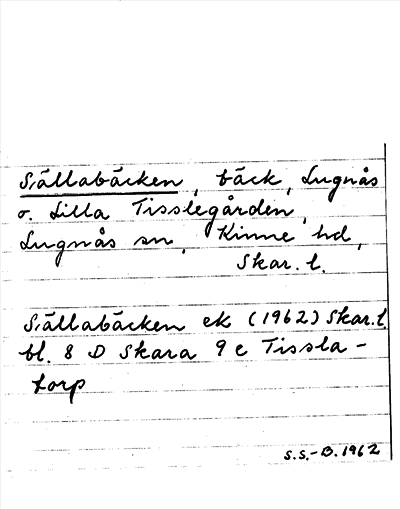 Sällabäcken, bäck, Lugnås
o. Lilla Tisslegården,
Lugnås sn, Kinne hd,
Skar. l.
Sällabäcken ek (1962) Skar. l
bl. 8 D Skara 9 c Tissla-
torp
S.S.-B. 1962